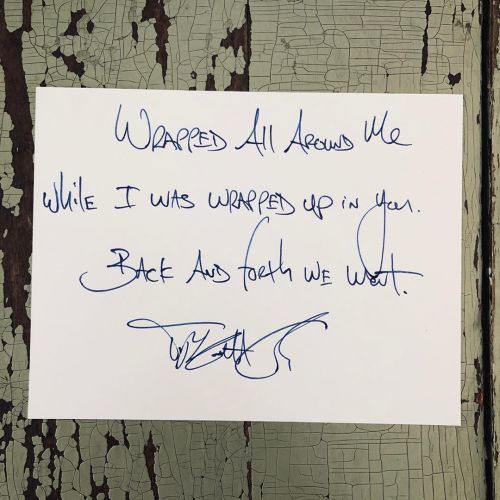 Wrapped All Around Me
While I was wrapped up in you.
Back And forth we went.